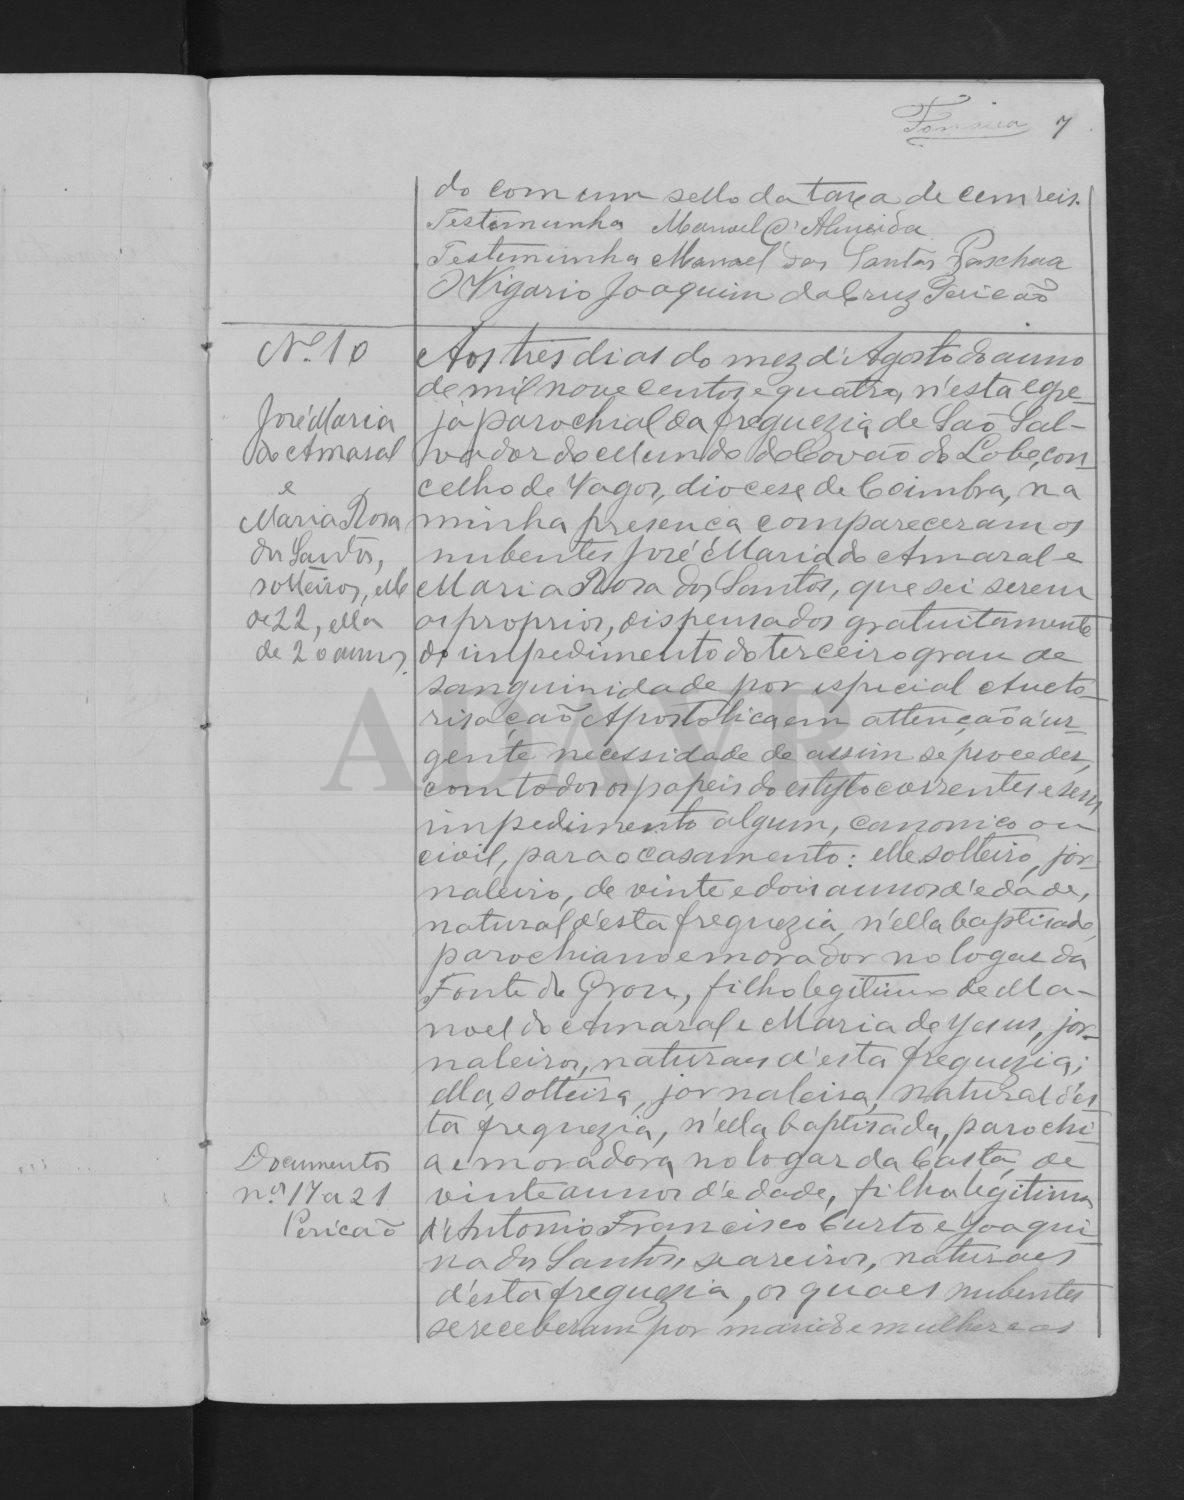 Fonseca 7
do com um sello da taxa de cem reis.
Testemunha Manuel d'Almeida
Testemunha Manoel dos Santos Paschoa
O Vigario Joaquim da Cruz Pericão
Nº 10
José Maria
do Amaral
e
Maria Rosa
dos Santos,
solteiros, elle
de 22, ella
de 20 annos.
Aos tres dias do mez d'Agosto do anno
de mil nove centos e quatro, n'esta egre-
ja parochial da freguezia de São Sal-
vador do Mundo do Covão do Lobo, con-
celho de Vagos, diocese de Coimbra, na
minha presença compareceram os
nubentes José Maria do Amaral e
Maria Rosa dos Santos, que sei serem
os proprios, dispensados gratuitamente
do impedimento do terceiro grau de
sanguinidade por especial Aucto-
risação Apostolica em attenção á ur-
gente necessidade de assim se proceder,
com todos os papeis do estylo correntes e sem
impedimento algum, canonico ou
civil, para o casamento: elle solteiro, jor-
naleiro, de vinte e dois annos d'edade,
natural d'esta freguezia, n'ella baptisado,
parochiano e morador no logar da
Fonte do Grou, filho legitimo de Ma-
noel do Amaral e Maria de Jesus, jor-
naleiros, naturaes d'esta freguezia;
ella, solteira, jornaleira, natural d'es-
ta freguezia, n'ella baptisada, parochi-
a e moradora no logar da Gasta, de
vinte annos d'edade, filha legitima
d'Antonio Francisco Curto e Joaqui-
na dos Santos, seareiros, naturaes
d'esta freguezia, os quaes nubentes
se receberam por marido e mulher e os
Documentos
nos 17 a 21
Pericão
ADAVR